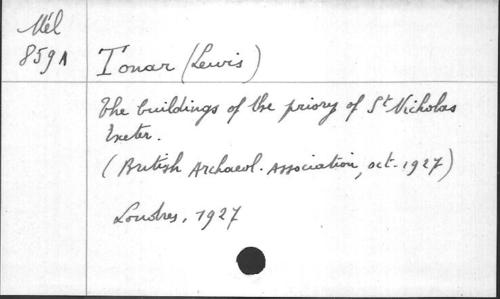 Mél
859A
Tonar (Lewis)
The buildings of the priory of St Nicholas
Exeter.
(British Archaeol. Association, oct. 1927)
Londres, 1927